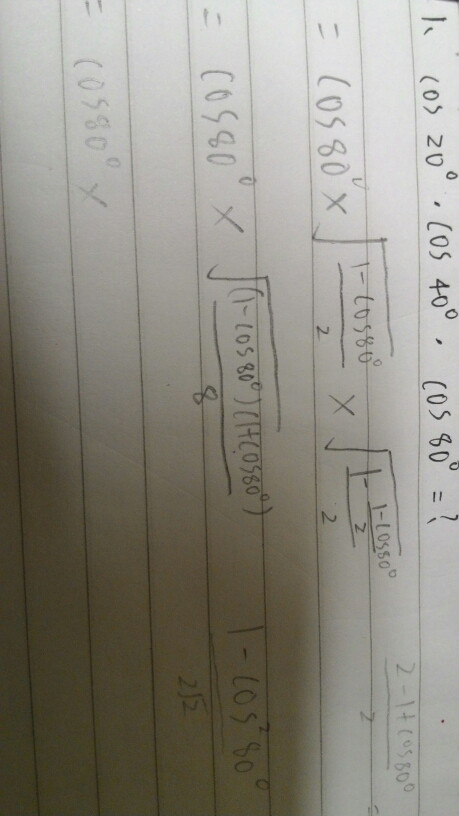 1、 cos 20° · cos 40° · cos 80° = ?
= cos80° × √((1-cos80°)/2) × √((1-(1-cos80°)/2)/2)
(2-1+cos80°)/2 =
= cos80° × √((1-cos80°)(1+cos80°)/8)
(1-cos²80°)/(2√2)
= cos80° ×